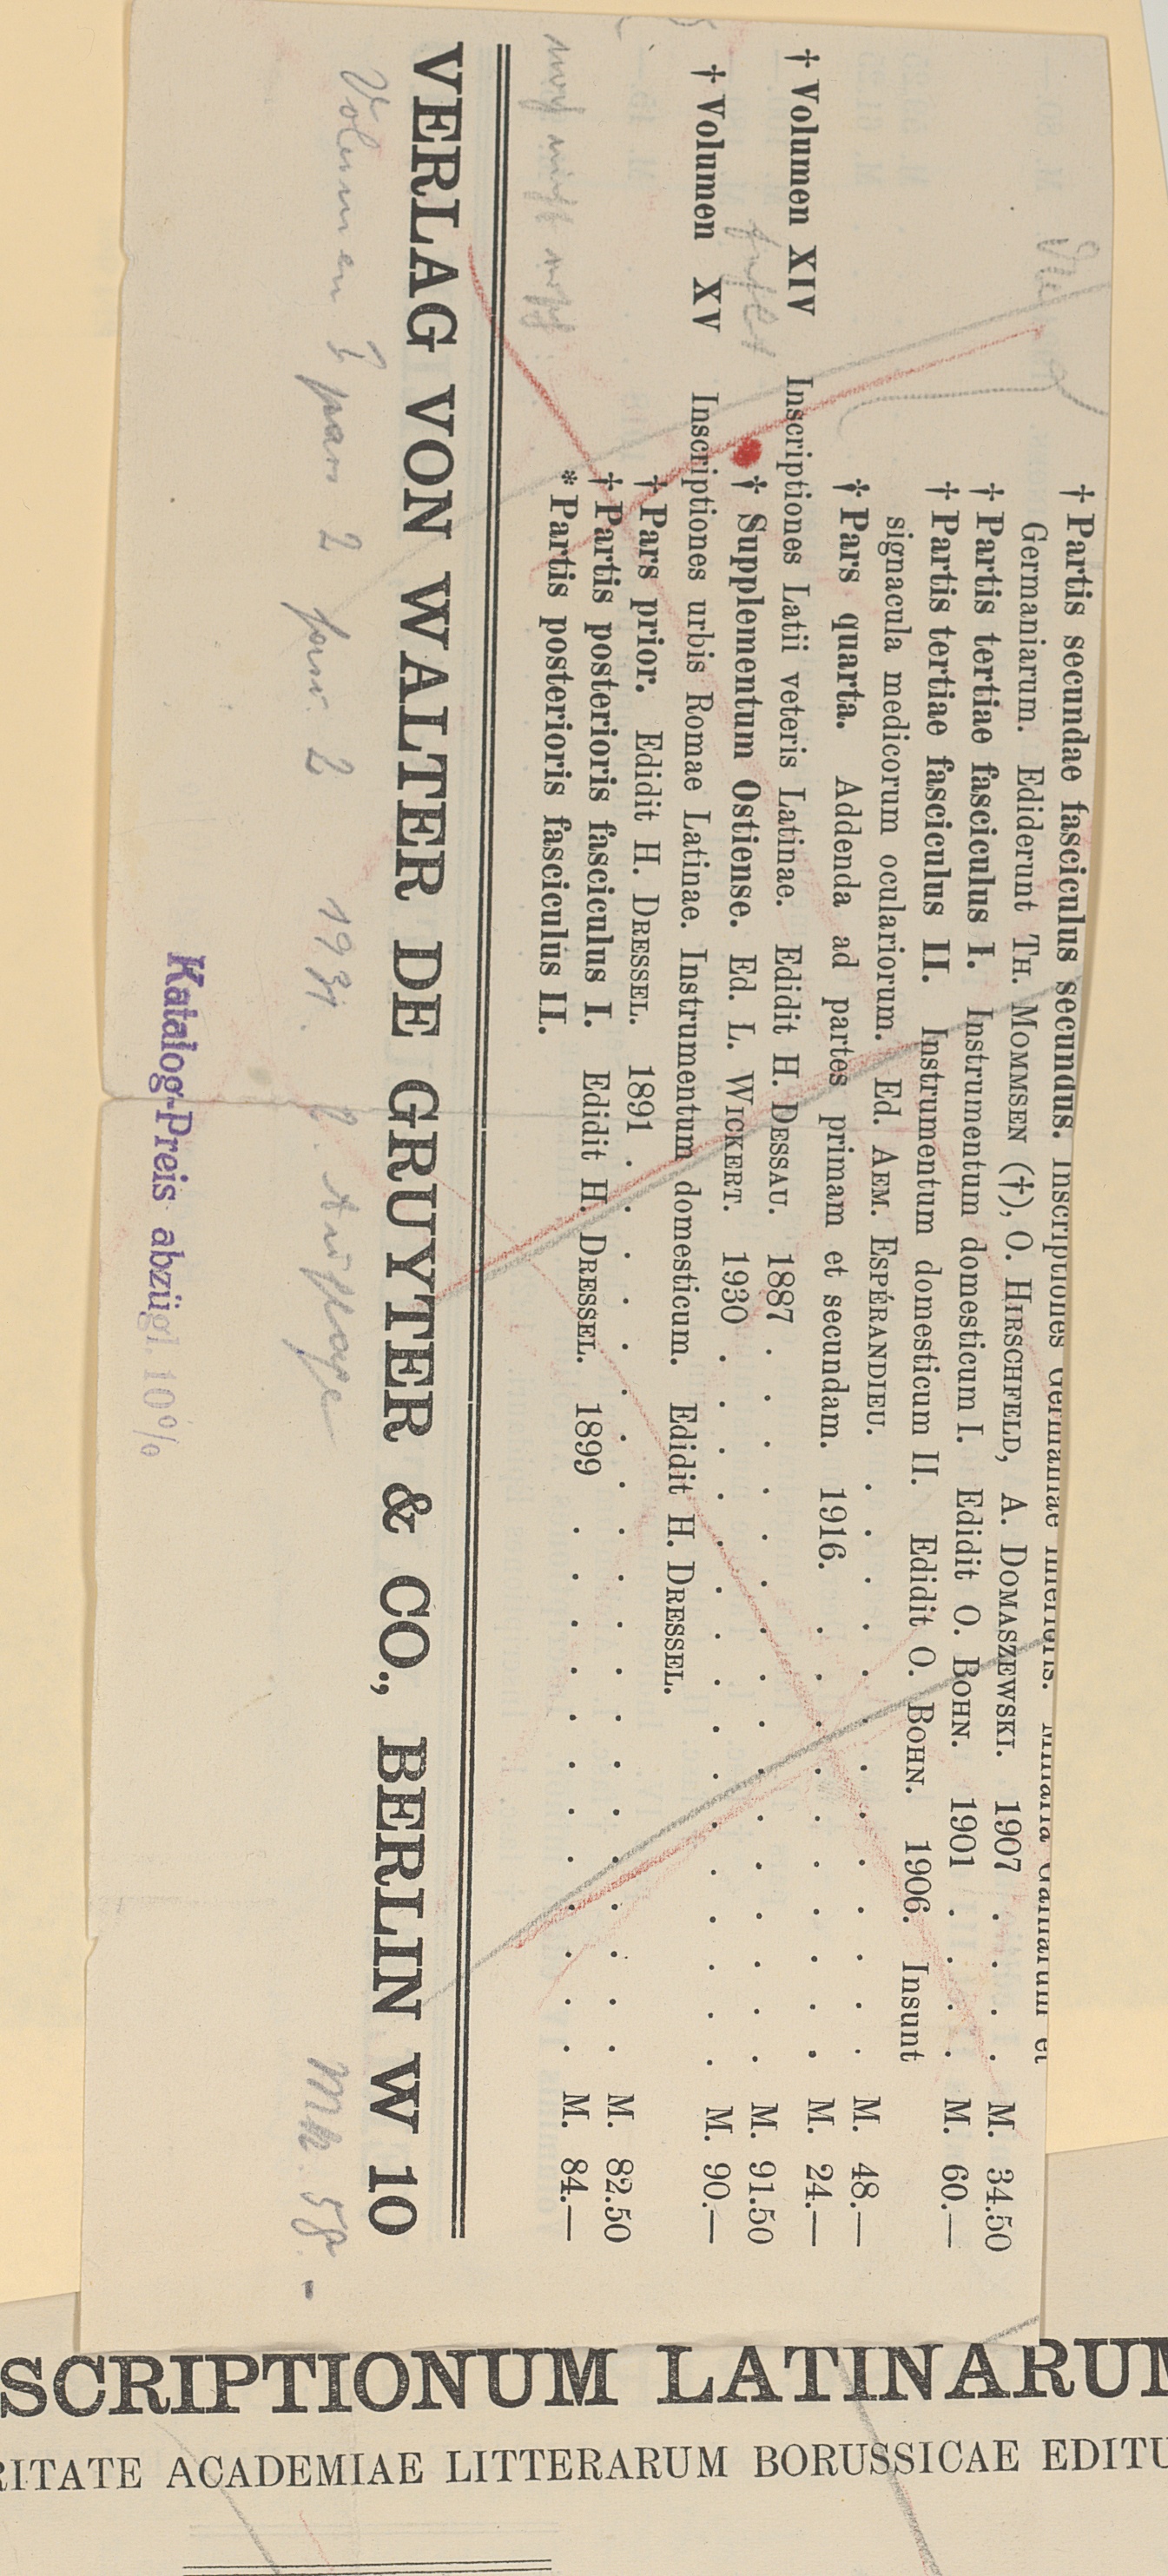 † Partis secundae fasciculus secundus. Inscriptiones Germaniae inferioris. Miliaria Galliarum et
Germaniarum. Ediderunt Th. Mommsen (†), O. Hirschfeld, A. Domaszewski. 1907 . . . . M. 34.50
† Partis tertiae fasciculus I. Instrumentum domesticum I. Edidit O. Bohn. 1901 . . . . M. 60.—
† Partis tertiae fasciculus II. Instrumentum domesticum II. Edidit O. Bohn. 1906. Insunt
signacula medicorum oculariorum. Ed. Aem. Espérandieu. . . . . . . . . . . . . . . M. 48.—
† Pars quarta. Addenda ad partes primam et secundam. 1916. . . . . . . . . . . . M. 24.—
† Volumen XIV Inscriptiones Latii veteris Latinae. Edidit H. Dessau. 1887 . . . . . . . . . . . . . . . . M. 91.50
† Supplementum Ostiense. Ed. L. Wickert. 1930 . . . . . . . . . . . . . . . . M. 90.—
† Volumen XV Inscriptiones urbis Romae Latinae. Instrumentum domesticum. Edidit H. Dressel.
† Pars prior. Edidit H. Dressel. 1891 . . . . . . . . . . . . . . . . . . . . M. 82.50
† Partis posterioris fasciculus I. Edidit H. Dressel. 1899 . . . . . . . . . . . . M. 84.—
* Partis posterioris fasciculus II.
noch nicht
VERLAG VON WALTER DE GRUYTER & CO., BERLIN W 10
Volumen I pars 2 1931. 2. Auflage Mk. 58.-
Katalog-Preis abzügl. 10%
SCRIPTIONUM LATINARUM
RITATE ACADEMIAE LITTERARUM BORUSSICAE EDITU